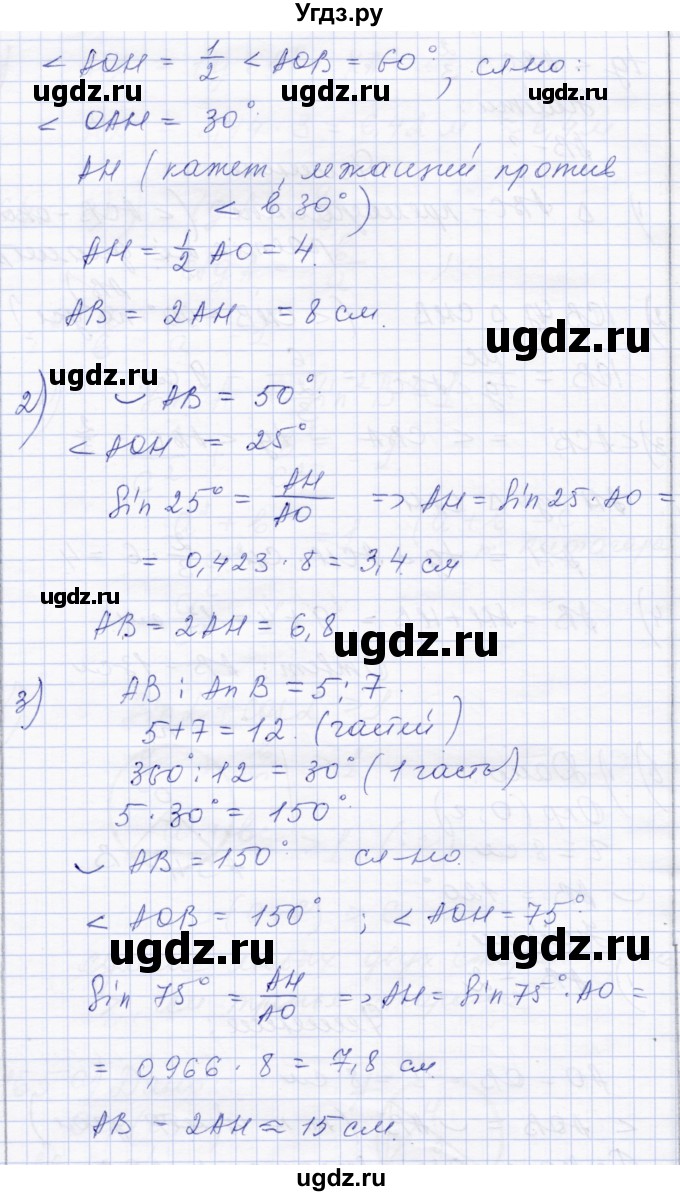 Угдз.ру
< AOH = 1/2 < AOB = 60°, сл-но:
ugdz.ru ugdz.ru ugdz.ru
< OAH = 30°
AH (катет, лежащий против
< в 30°)
AH = 1/2 AO = 4.
AB = 2AH = 8 см.
ugdz.ru
ugdz.ru
2) ◡ AB = 50°
< AOH = 25°
Sin 25° = AH/AO => AH = Sin 25 · AO =
= 0,423 · 8 = 3,4 см
ugdz.ru
AB = 2AH = 6,8
ugdz.ru
3) AB : AnB = 5 : 7.
5+7 = 12. (частей)
360° : 12 = 30° (1 часть)
5 · 30° = 150°
◡ AB = 150° сл-но.
< AOB = 150° ; < AOH = 75°
ugdz.ru ugdz.ru
Sin 75° = AH/AO => AH = Sin 75° · AO =
= 0,966 · 8 = 7,8 см
AB - 2AH ≈ 15 см.
ugdz.ru